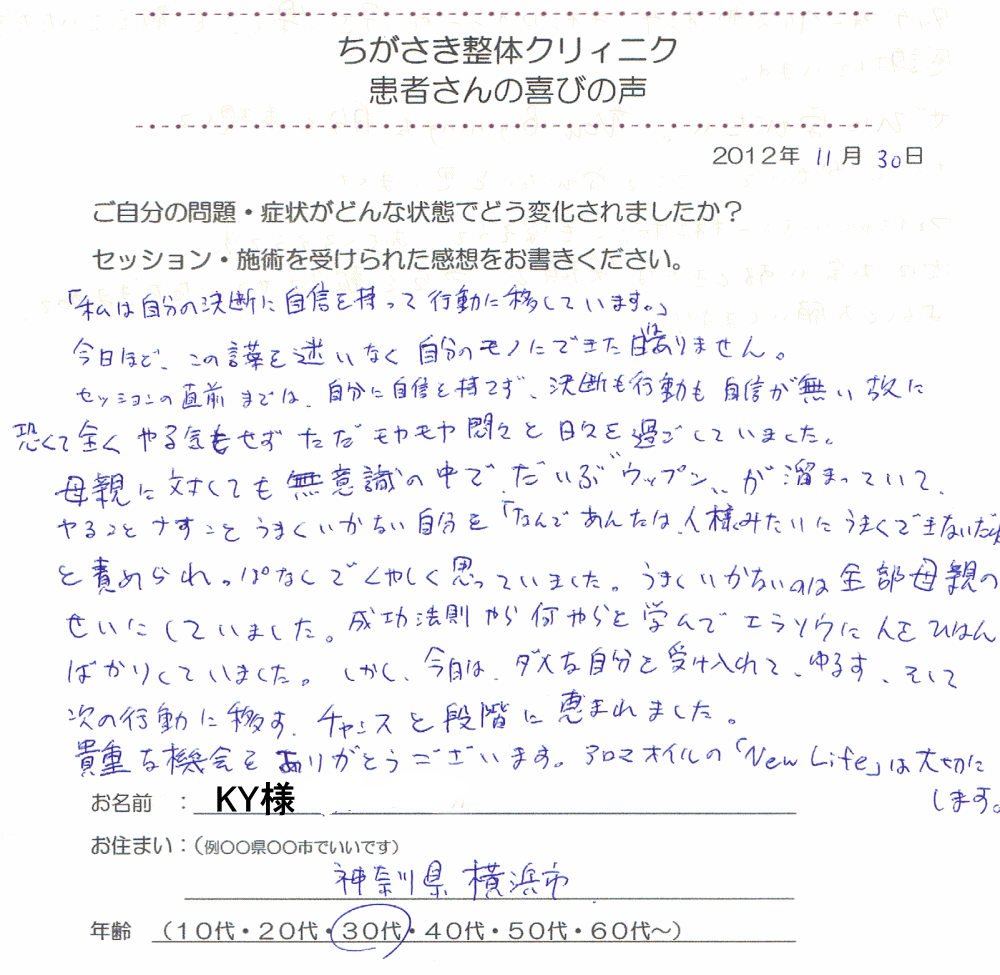 ちがさき整体クリィニク
患者さんの喜びの声
2012年 11月 30日
ご自分の問題・症状がどんな状態でどう変化されましたか？
セッション・施術を受けられた感想をお書きください。
「私は自分の決断に自信を持って行動に移しています。」
今日ほど、この言葉を迷いなく自分のモノにできた日はありません。
セッションの直前までは、自分に自信を持てず、決断も行動も自信が無い故に
恐くて全くやる気もせずただモヤモヤ悶々と日々を過ごしていました。
母親に対しても無意識の中で、だいぶ"ウップン"が溜まっていて、
やることなすことうまくいかない自分を「なんであんたは、人様みたいにうまくできないだ
と責められ。っぱなしでくやしく思っていました。うまくいかないのは全部母親の
せいにしていました。成功法則やら何やらと学んでエラソウに人をひはん
ばかりしていました。しかし、今日は、ダメな自分を受け入れて、ゆるす、そして
次の行動に移す、チャンスと段階に恵まれました。
貴重な機会をありがとうございます。アロマオイルの「New Life」は大切に
します。
お名前 ： KY様
お住まい：（例○○県○○市でいいです）
神奈川県 横浜市
年齢 （10代・20代・30代・40代・50代・60代～）